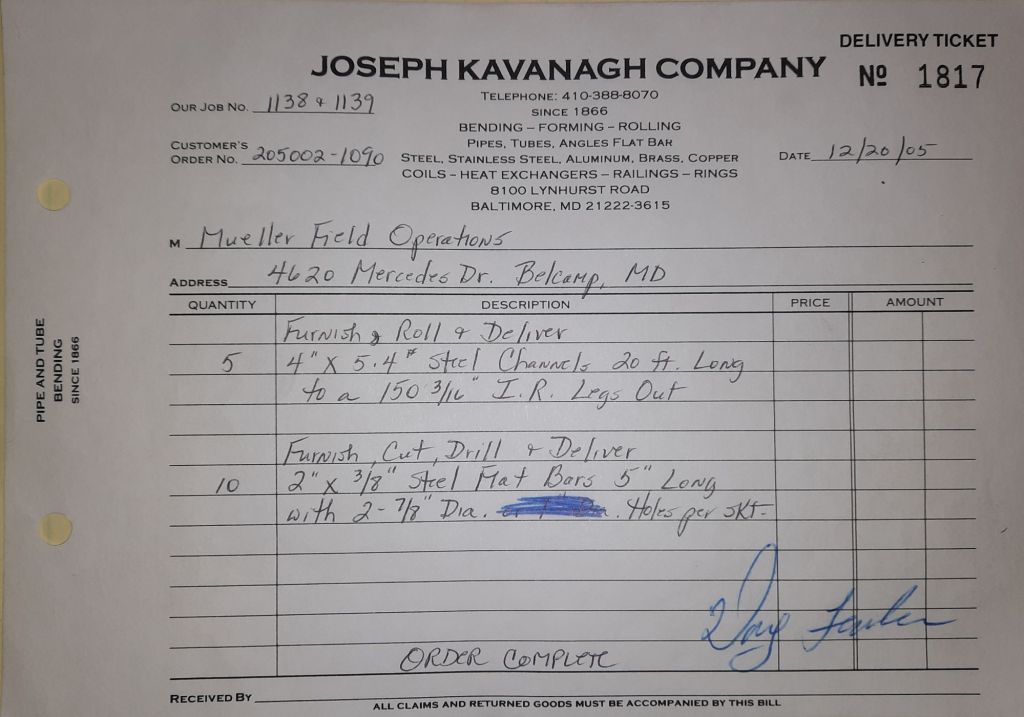 DELIVERY TICKET
JOSEPH KAVANAGH COMPANY
Nº 1817
TELEPHONE: 410-388-8070
SINCE 1866
BENDING – FORMING – ROLLING
PIPES, TUBES, ANGLES FLAT BAR
STEEL, STAINLESS STEEL, ALUMINUM, BRASS, COPPER
COILS – HEAT EXCHANGERS – RAILINGS – RINGS
8100 LYNHURST ROAD
BALTIMORE, MD 21222-3615
OUR JOB NO. 1138 & 1139
CUSTOMER'S
ORDER NO. 205002-1090
DATE 12/20/05
M Mueller Field Operations
ADDRESS 4620 Mercedes Dr. Belcamp, MD
QUANTITY DESCRIPTION PRICE AMOUNT
Furnish, Roll & Deliver
5 4" X 5.4# Steel Channels 20 ft. Long
to a 150 3/16" I.R. Legs Out
Furnish, Cut, Drill & Deliver
10 2" x 3/8" Steel Flat Bars 5" Long
with 2- 7/8" Dia. Holes per skt-
ORDER COMPLETE
RECEIVED BY
ALL CLAIMS AND RETURNED GOODS MUST BE ACCOMPANIED BY THIS BILL
PIPE AND TUBE
BENDING
SINCE 1866